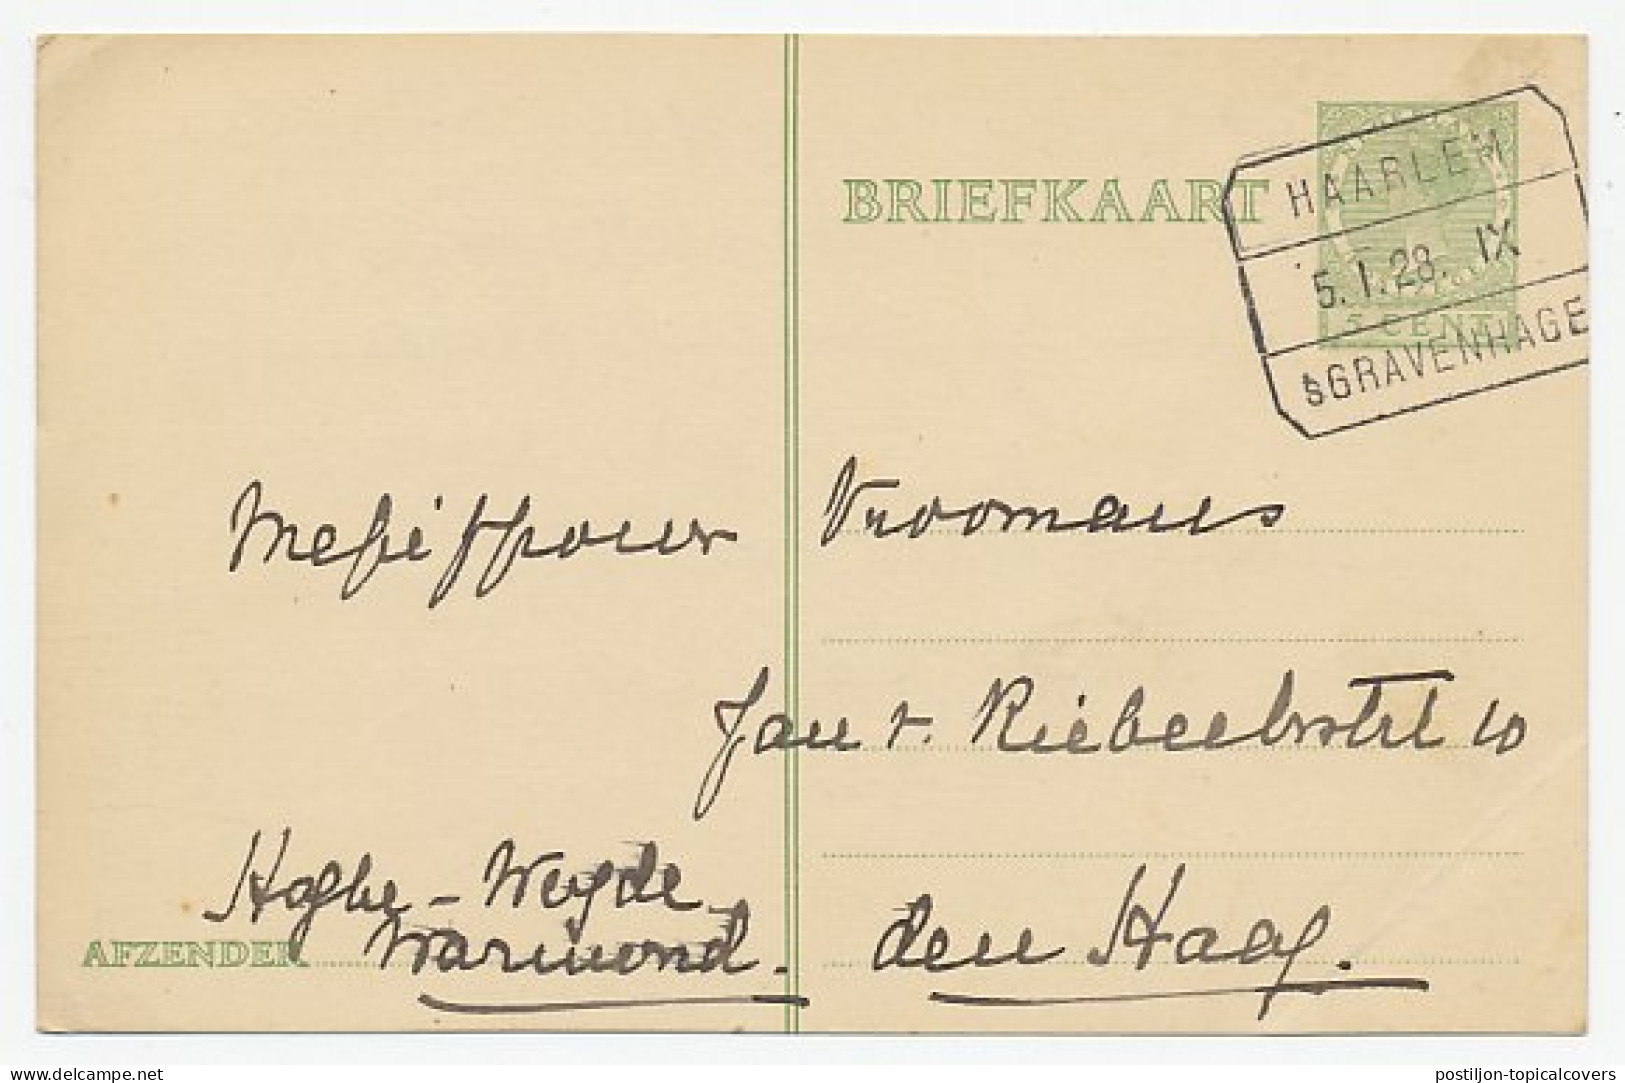 BRIEFKAART
HAARLEM
5.1.28. IX
5 CENT
'sGRAVENHAGE
Vroomans
Jan v. Riebeekstrt 10
Weyde
AFZENDER Warmond.
den Haag.
www.delcampe.net
postiljon-topicalcovers